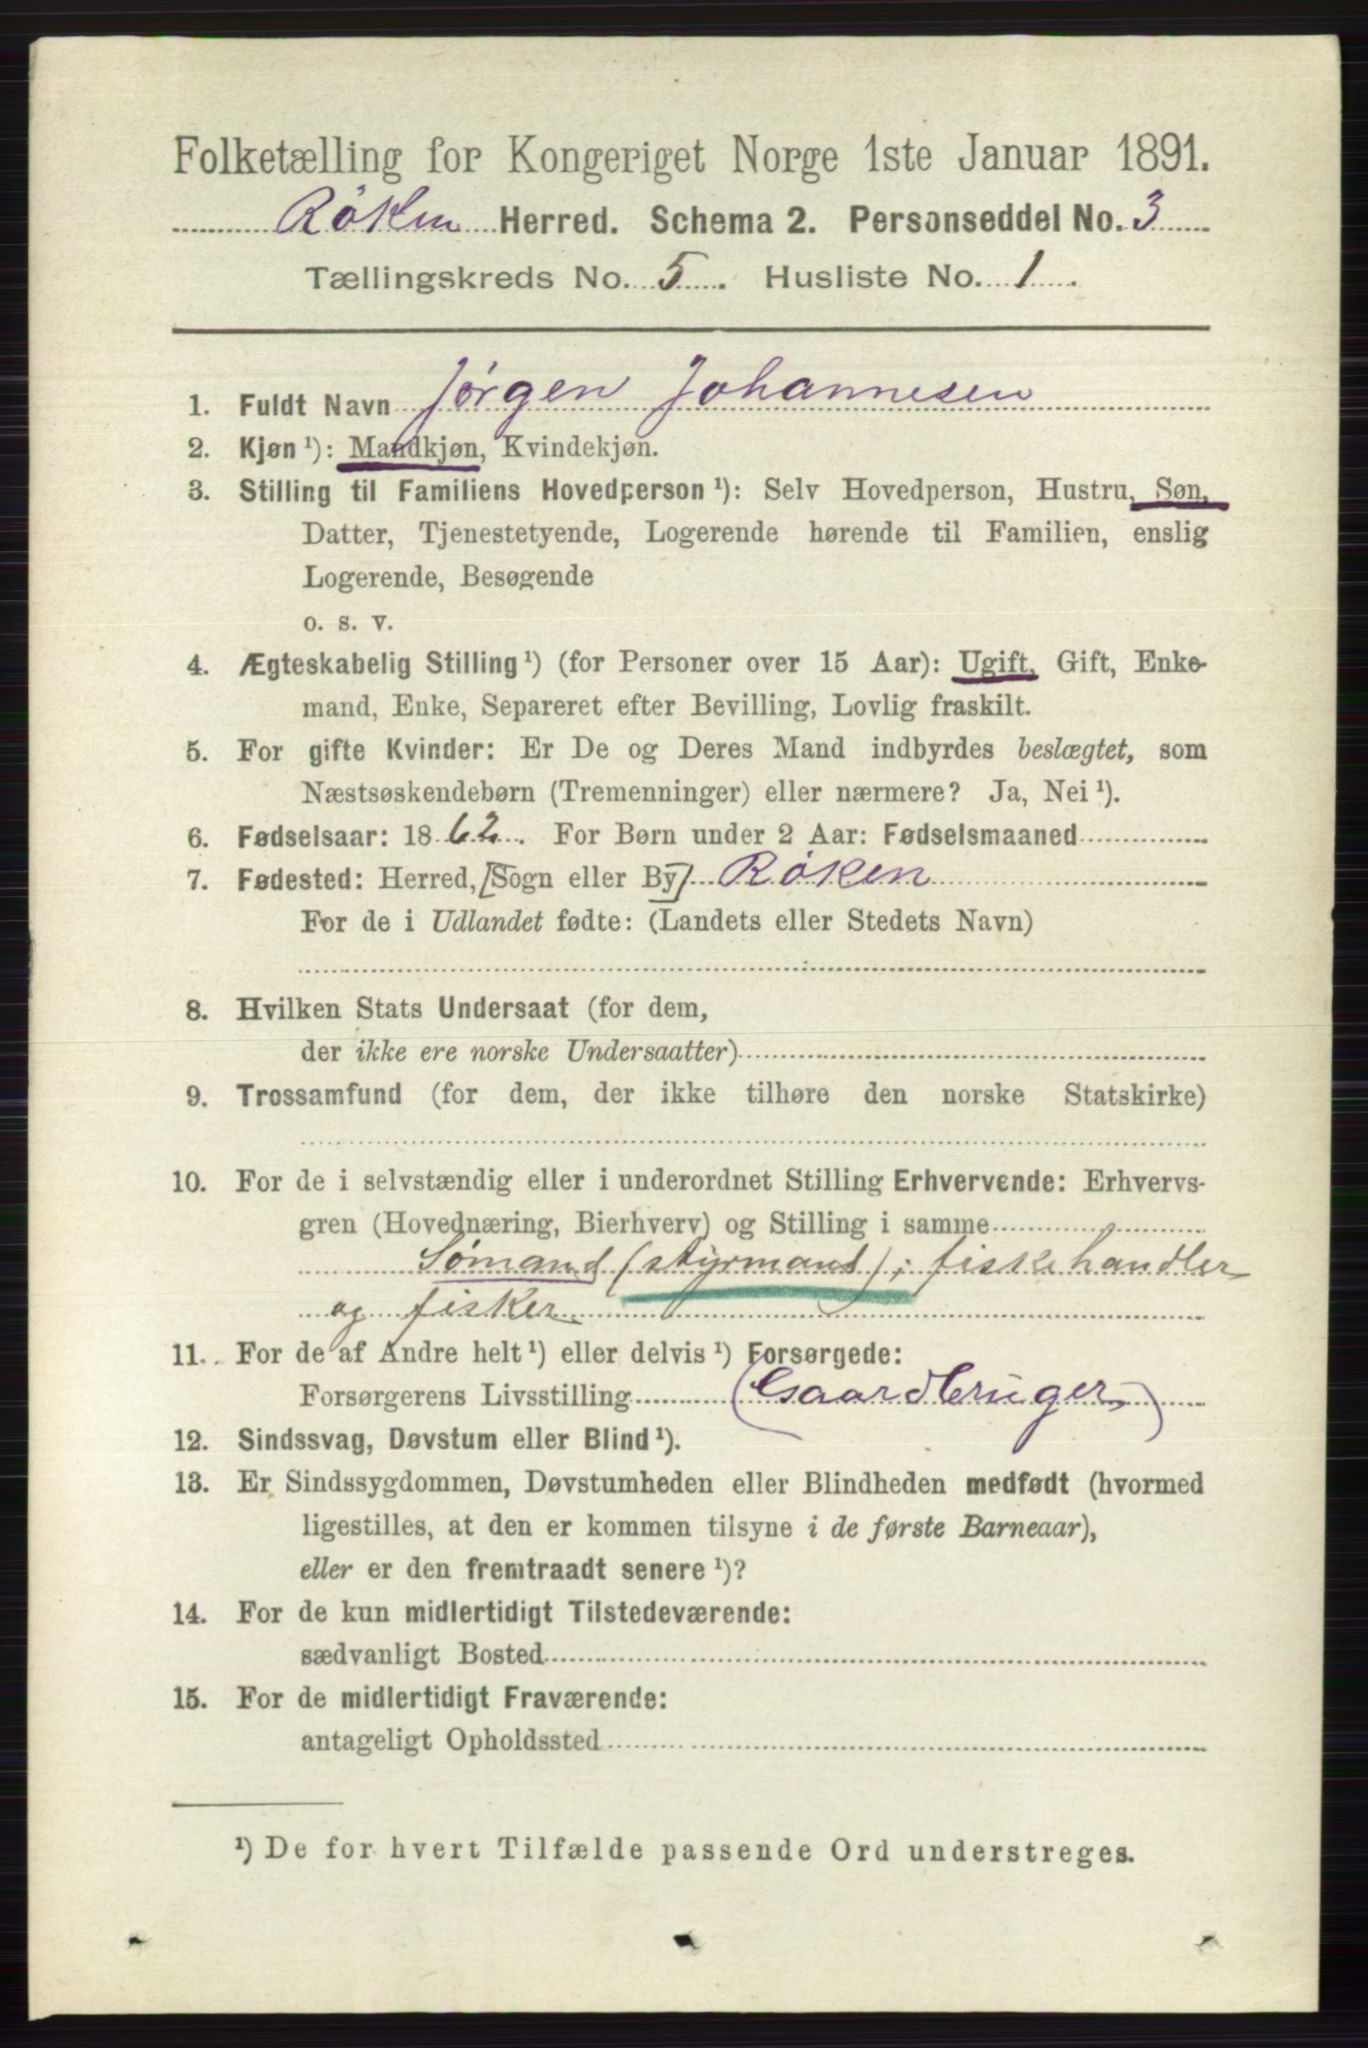 Folketælling for Kongeriget Norge 1ste Januar 1891.
Røken Herred. Schema 2. Personseddel No. 3
Tællingskreds No. 5. Husliste No. 1.
1. Fuldt Navn Jørgen Johannesen
2. Kjøn ¹): Mandkjøn, Kvindekjøn.
3. Stilling til Familiens Hovedperson ¹): Selv Hovedperson, Hustru, Søn,
Datter, Tjenestetyende, Logerende hørende til Familien, enslig
Logerende, Besøgende
o. s. v.
4. Ægteskabelig Stilling ¹) (for Personer over 15 Aar): Ugift, Gift, Enke-
mand, Enke, Separeret efter Bevilling, Lovlig fraskilt.
5. For gifte Kvinder: Er De og Deres Mand indbyrdes beslægtet, som
Næstsøskendebørn (Tremenninger) eller nærmere? Ja, Nei ¹).
6. Fødselsaar: 1862. For Børn under 2 Aar: Fødselsmaaned
7. Fødested: Herred, [Sogn eller By] Røken
For de i Udlandet fødte: (Landets eller Stedets Navn)
8. Hvilken Stats Undersaat (for dem,
der ikke ere norske Undersaatter)
9. Trossamfund (for dem, der ikke tilhøre den norske Statskirke)
10. For de i selvstændig eller i underordnet Stilling Erhvervende: Erhvervs-
gren (Hovednæring, Bierhverv) og Stilling i samme
Sømand (styrmand); fiskehandler
og fisker.
11. For de af Andre helt ¹) eller delvis ¹) Forsørgede:
Forsørgerens Livsstilling (Gaardbruger)
12. Sindssvag, Døvstum eller Blind ¹).
13. Er Sindssygdommen, Døvstumheden eller Blindheden medfødt (hvormed
ligestilles, at den er kommen tilsyne i de første Barneaar),
eller er den fremtraadt senere ¹)?
14. For de kun midlertidigt Tilstedeværende:
sædvanligt Bosted
15. For de midlertidigt Fraværende:
antageligt Opholdssted
¹) De for hvert Tilfælde passende Ord understreges.